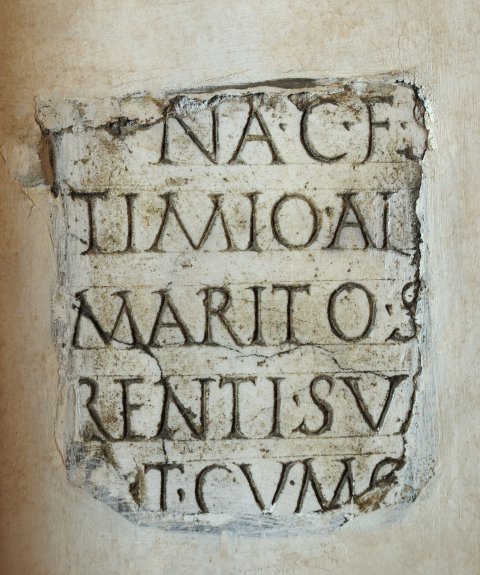 NA·C·F·
TIMIO·AL
MARITO·S
RENTI·SVV
T·CVM